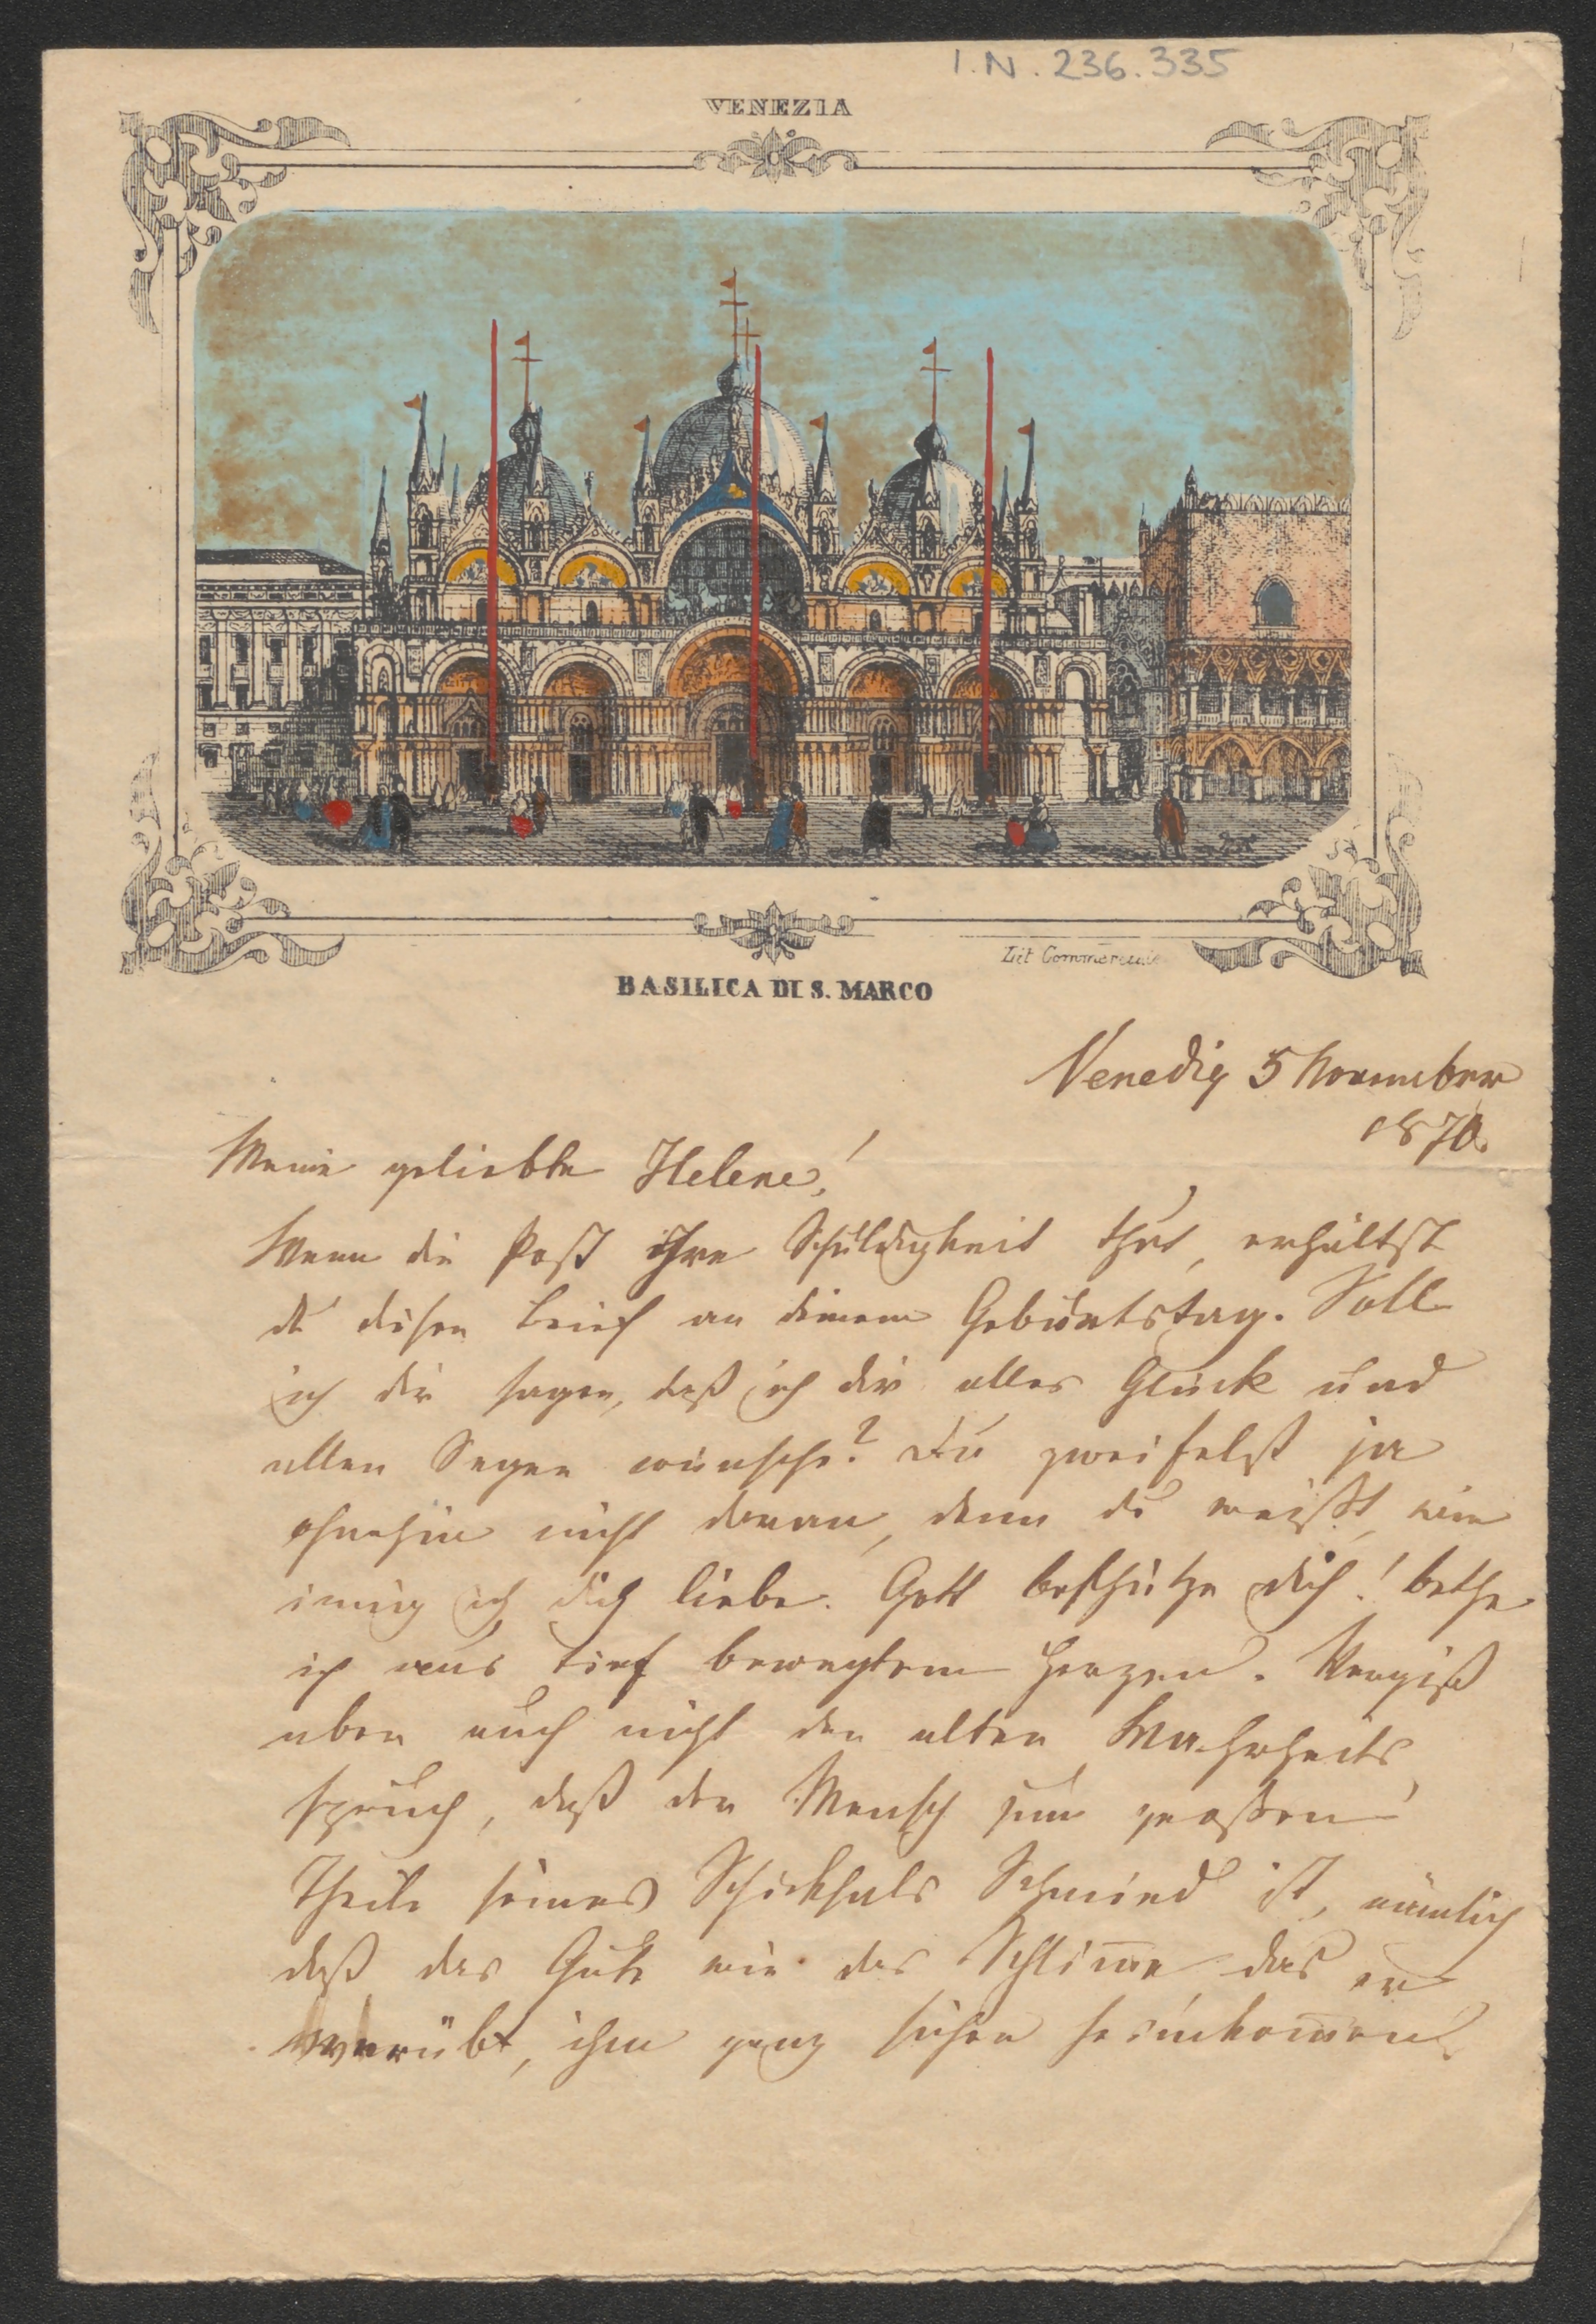 I.N. 236.335
VENEZIA
Lit Commerciale
BASILICA DI S. MARCO
Venedig 5 November
1870.
Meine geliebte Helene!
Wenn die Post ihre Schuldigkeit thut, erhältst
du diesen Brief an deinem Geburtstag. Soll
ich dir sagen, daß ich dir alles Glück und
allen Segen wünsche? Du zweifelst ja
ohnehin nicht daran, denn du weißt, wie
innig ich dich liebe. Gott beschütze dich! bethe
ich aus tief bewegtem Herzen. Vergiß
aber auch nicht den alten Wahrheits
spruch, daß der Mensch zum großen
Theile seines Schicksals Schmied ist, nämlich
daß das Gute wie das Schlimme das er
verübt, ihm ganz sicher heimkommen